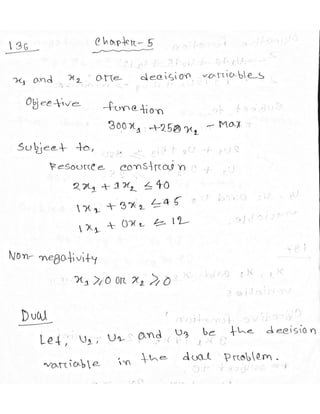 136 Chapter-5
x₁ and x₂ are decision variables
Objective function
300x₁ + 250x₂ - Max
Subject to,
Resource constrain
2x₁ + 1x₂ ≤ 40
1x₁ + 3x₂ ≤ 45
1x₁ + 0x₂ ≤ 12
Non-negativity
x₁ ≥ 0 or x₂ ≥ 0
Dual
Let, U₁, U₂ and U₃ be the decision
variable in the dual problem.